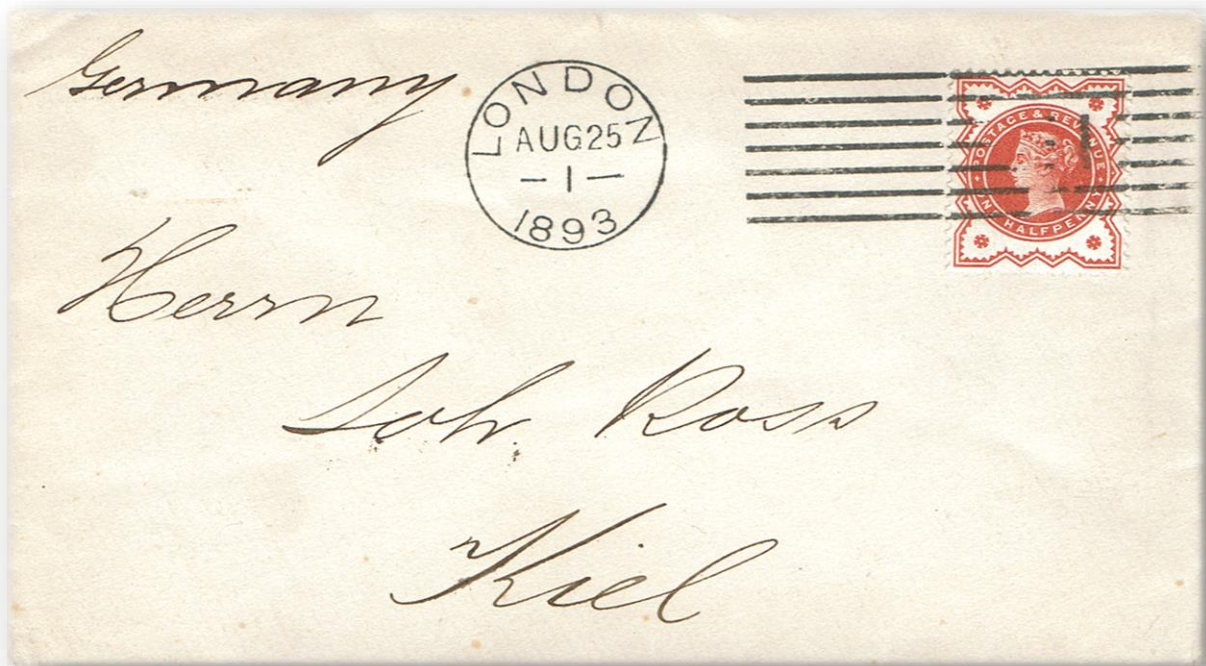 Germany
LONDON
AUG25
1
1893
POSTAGE & REVENUE
HALFPENNY
1
Herrn
Joh. Ross
Kiel